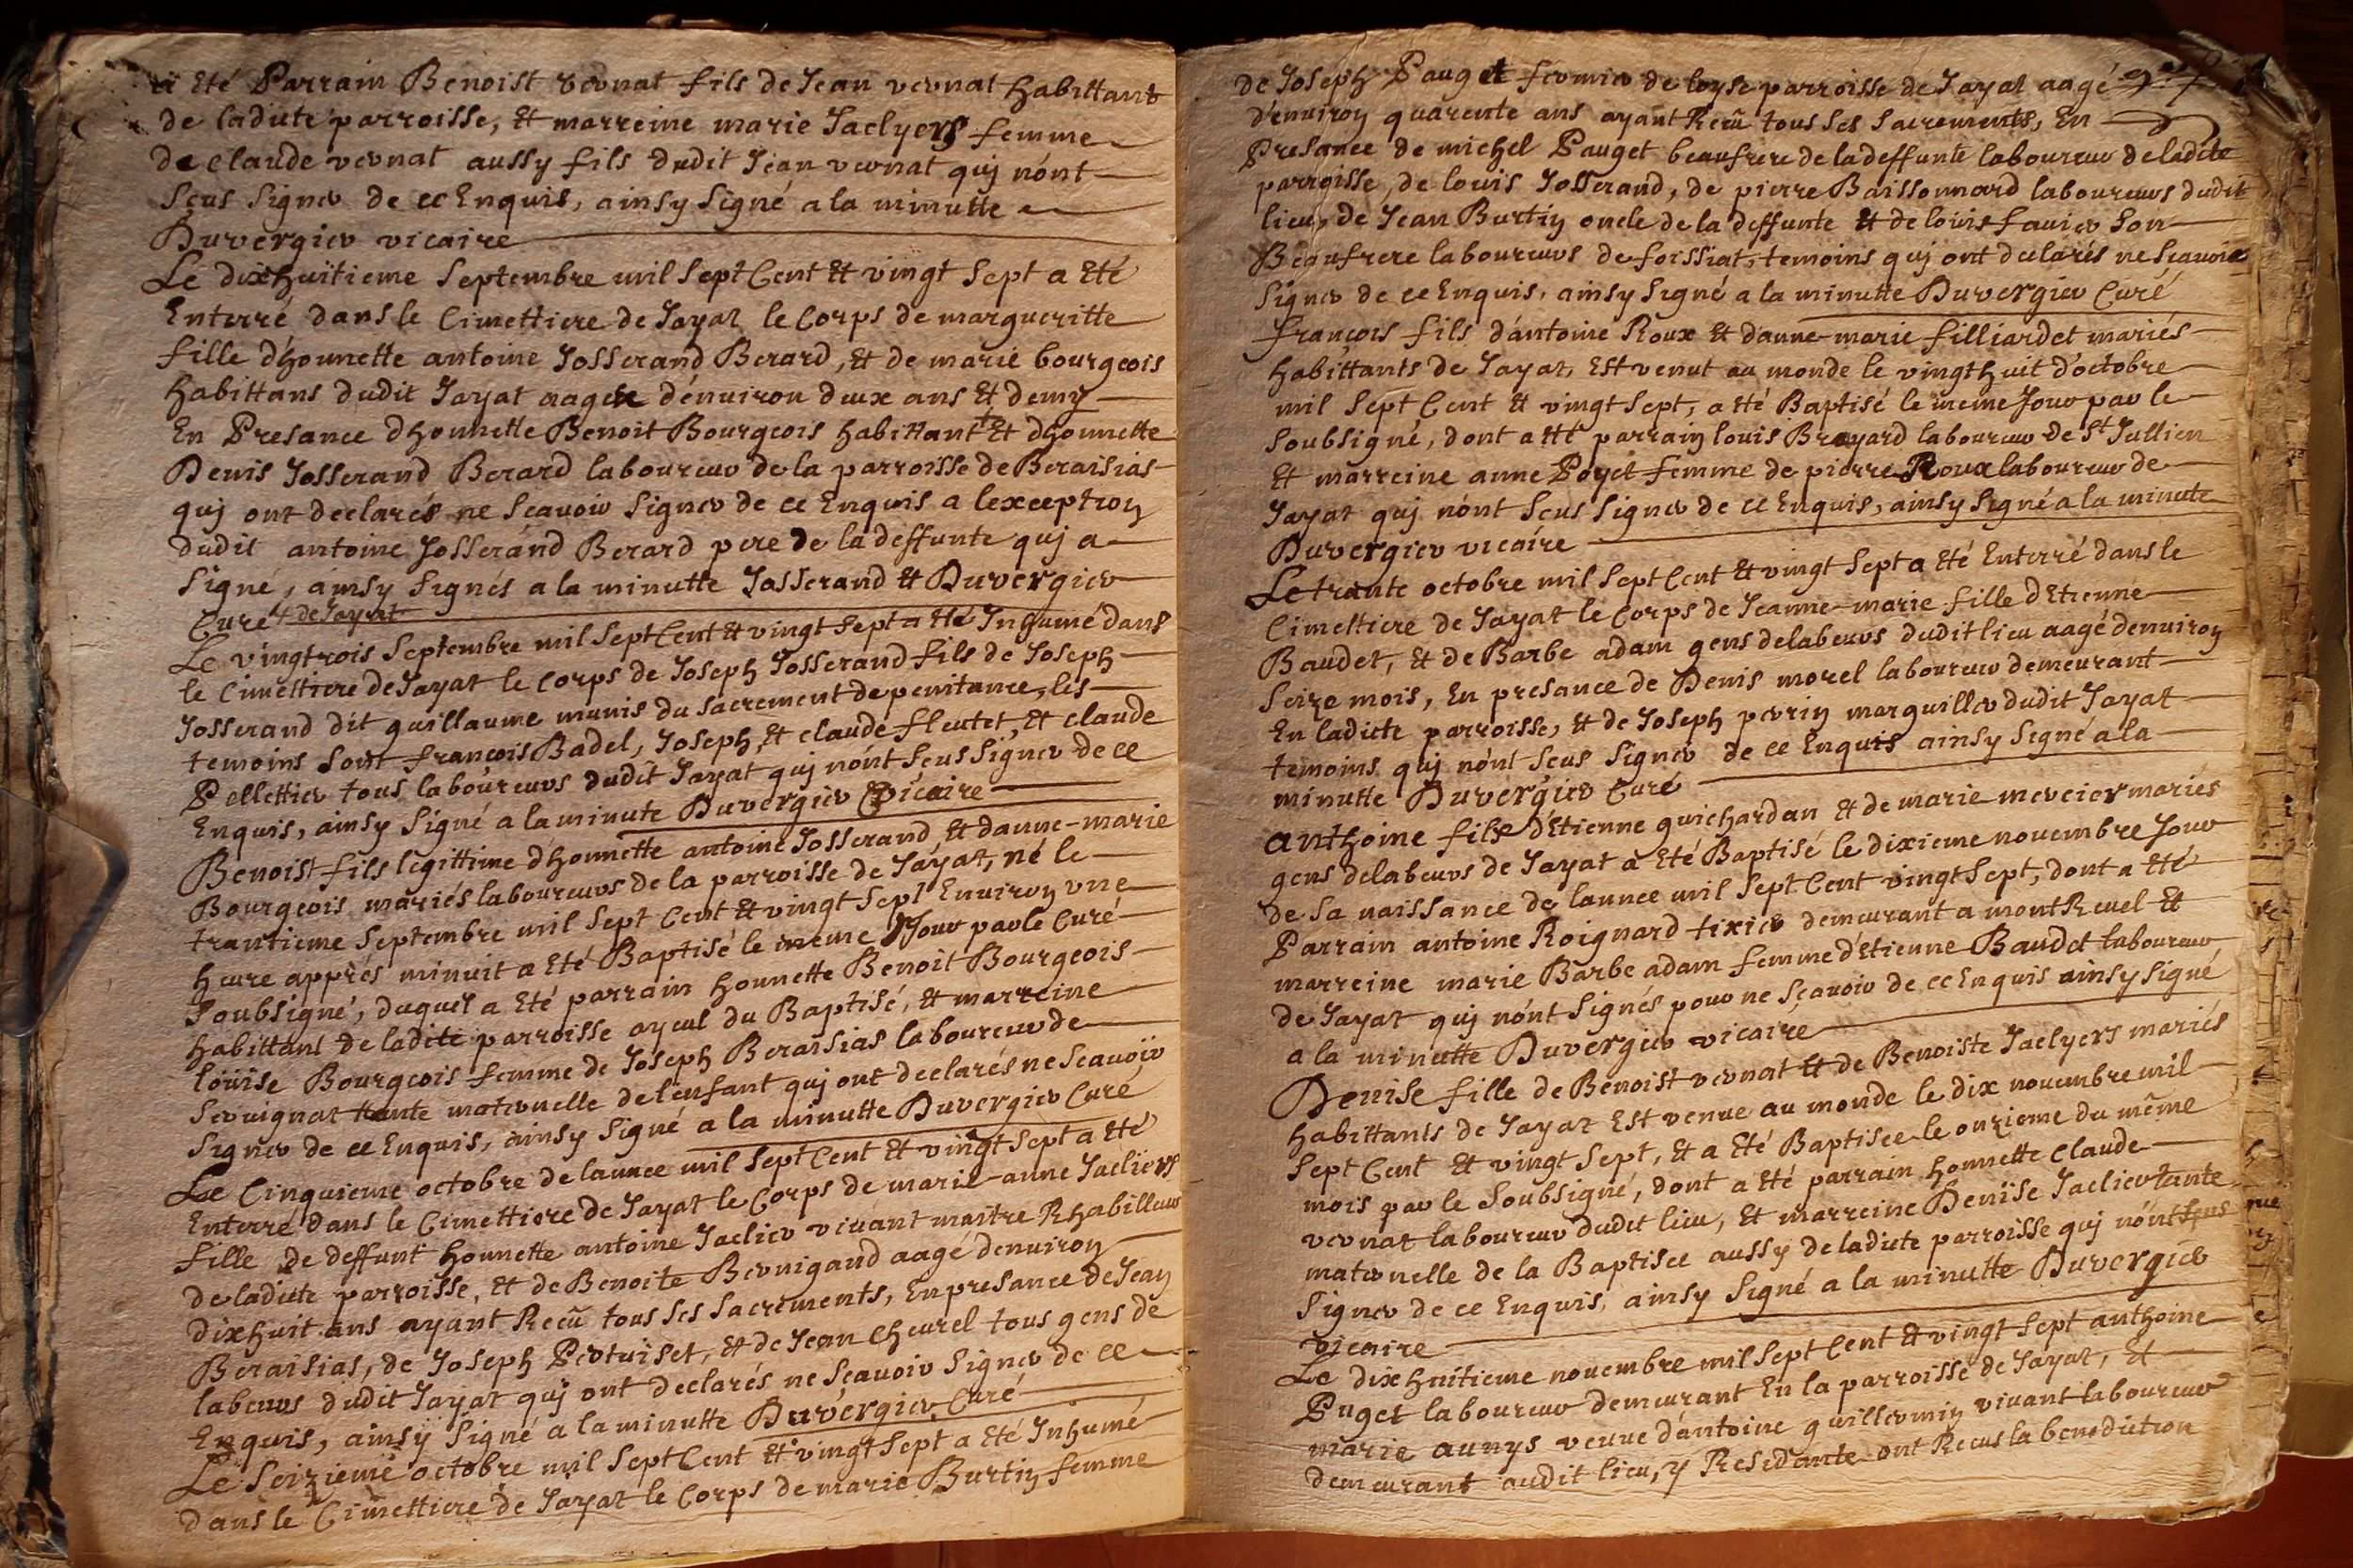 a Eté Parrain Benoist vernat fils de Jean vernat habittant
de ladicte parroisse, Et marreine marie Jaclyers femme
de claude vernat aussy fils dudit Jean vernat quj nónt
Sçus Signer de ce Enquis, ainsy Signé a la minutte
Duvergier vicaire
Le dixhuitieme Septembre mil Sept Cent Et vingt Sept a Eté
Enterré dans le Cimettiere de Jayat le Corps de margueritte
fille d'honnette antoine Josserand Berard, Et de marie bourgeois
habittans dudit Jayat aagée d'enuiron deux ans Et demy
En Presance d'honnette Benoit Bourgeois habittant Et d'honnette
Denis Josserand Berard laboureur de la parroisse de Beraisias
quj ont declarés ne Scauoir Signer de ce Enquis a lexception
dudit antoine Josserand Berard pere de la deffunte quj a
Signé, ainsy Signés a la minutte Josserand Et Duvergier
Curé de Jayat
Le vingtrois Septembre mil Sept Cent Et vingt Sept a Eté Inhumé dans
le Cimettiere de Jayat le Corps de Joseph Josserand fils de Joseph
Josserand dit guillaume munis du Sacrement de penitance, les
temoins Sont françois Badel, Joseph, Et claude fleutet, Et claude
Pellettier tous laboureurs dudit Jayat quj nónt Sçus Signer de ce
Enquis, ainsy Signé a la minute Duvergier Vicaire
Benoist fils legittime d'honnette antoine Josserand, Et d'anne-marie
Bourgeois mariés laboureurs de la parroisse de Jayat, né le
trantieme Septembre mil Sept Cent Et vingt Sept Enuiron vne
heure apprés minuit a Eté Baptisé le meme Jour par le Curé
Soubsigné, duquel a Eté parrain honnette Benoit Bourgeois
habittant de ladite parroisse ayeul du Baptisé, Et marreine
loüise Bourgeois femme de Joseph Beraisias laboureur de
Seruignat ttante maternelle de l'enfant quj ont declarés ne Scauoir
Signer de ce Enquis, ainsy Signé a la minutte Duvergier Curé
Le Cinquieme octobre de lannee mil Sept Cent Et vingt Sept a Eté
Enterré dans le Cimettiere de Jayat le Corps de marie-anne Jacliers
fille de deffunt honnette antoine Jaclier viuant maitre Rhabilleur
de ladicte parroisse, Et de Benoite Bernigaud aagé denuiron
dixhuit ans ayant Recû tous Ses Sacrements, En presance de Jean
Beraisias, de Joseph Pertuiset, Et de Jean Cheurel tous gens de
labeurs dudit Jayat quj ont declarés ne Scauoir Signer de ce
Enquis, ainsy Signé a la minutte Duvergier Curé
Le Seizieme octobre mil Sept Cent Et vingt Sept a Eté Inhumé
dans le Cimettiere de Jayat le Corps de marie Burtin femme
de Joseph Pauget fermier de loyse parroisse de Jayat aagé
d'enuiron quarente ans ayant Recû tous Ses Sacrements, En
Presance de michel Pauget beaufrere de la deffunte laboureur de ladite
parroisse, de louis Josserand, de pierre Baissonnard laboureurs dudit
lieu, de Jean Burtin oncle de la deffunte Et de louis fauier Son
Beaufrere laboureurs de foissiat, temoins quj ont declarés ne Scauoir
Signer de ce Enquis, ainsy Signé a la minutte Duvergier Curé
françois fils d'antoine Roux Et d'anne-marie filliardet mariés
habittants de Jayat, Est venut au monde le vingthuit d'octobre
mil Sept Cent Et vingt Sept, a Eté Baptisé le meme Jour par le
Soubsigné, dont a Eté parrain louis Brayard laboureur de St Jullien
Et marreine anne Poyet femme de pierre Roux laboureur de
Jayat quj nónt Sçus Signer de ce Enquis, ainsy Signé a la minute
Duvergier vicaire
Le trante octobre mil Sept Cent Et vingt Sept a Eté Enterré dans le
Cimettiere de Jayat le Corps de Jeanne-marie fille d'Etienne
Baudet, Et de Barbe adam gens de labeurs dudit lieu aagé denuiron
Seize mois, En presance de Denis morel laboureur demeurant
En ladicte parroisse, Et de Joseph perrin marguiller dudit Jayat
temoins quj nónt Sçus Signer de ce Enquis ainsy Signé a la
minutte Duvergier Curé
anthoine fils d'Etienne guichardan Et de marie mercier mariés
gens de labeurs de Jayat a Eté Baptisé le dixieme nouembre Jour
de Sa naissance de lannee mil Sept Cent vingt Sept, dont a Eté
Parrain antoine Roignard tixier demeurant a montReuel Et
marreine marie Barbe adam femme d'Etienne Baudet laboureur
de Jayat quj nónt Signés pour ne Sçauoir de ce Enquis ainsy Signé
a la minutte Duvergier vicaire
Denise fille de Benoist vernat Et de Benoiste Jaclyers mariés
habittants de Jayat Est venue au monde le dix nouembre mil
Sept Cent Et vingt Sept, Et a Eté Baptisée le onzieme du même
mois par le Soubsigné, dont a Eté parrain honnette Claude
vernat laboureur dudit lieu, Et marreine Denise Jaclier tante
maternelle de la Baptisee aussy de ladicte parroisse quj nónt Sçus
Signer de ce Enquis, ainsy Signé a la minutte Duvergier
vicaire
Le dixhuitieme nouembre mil Sept Cent Et vingt Sept anthoine
Puget laboureur demeurant En la parroisse de Jayat, Et
marie aunys veuue d'antoine guillermin viuant laboureur
demeurant audit lieu, y Residante ont Recus la benediction